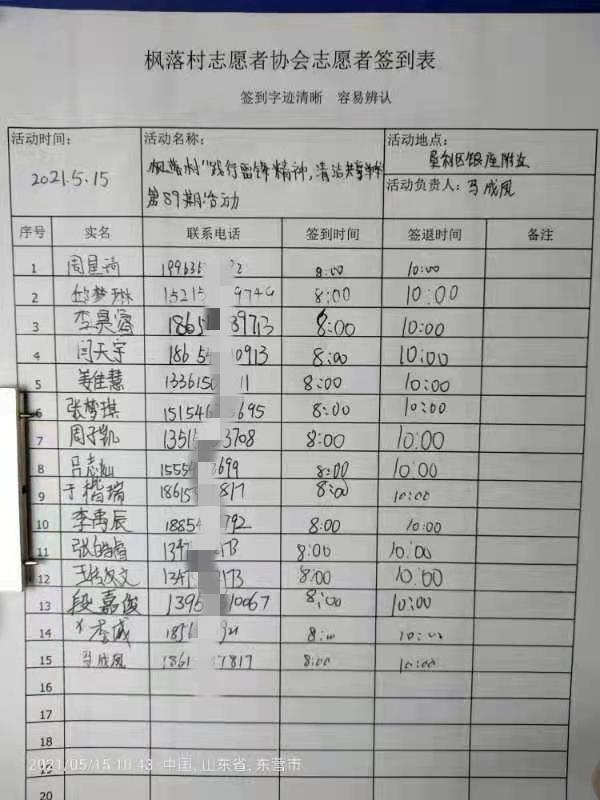 枫落村志愿者协会志愿者签到表
签到字迹清晰 容易辨认
活动时间: 活动名称: 活动地点:
2021.5.15 枫落村"践行雷锋精神,清洁 垦利区银座附近
第89期活动 活动负责人: 马成凤
序号 实名 联系电话 签到时间 签退时间 备注
1 周 8:00 10:00
2 邱梦琳 15215 9746 8:00 10:00
3 李昊睿 1865 39713 8:00 10:00
4 闫天宇 1865 10913 8:00 10:00
5 姜佳慧 1336150 11 8:00 10:00
6 张梦琪 151546 3695 8:00 10:00
7 周子凯 1351 3708 8:00 10:00
8 吕志灿 1555 3699 8:00 10:00
9 于楷瑞 18615 817 8:00 10:00
10 李禹辰 1885 792 8:00 10:00
11 张皓睿 1347 173 8:00 10:00
12 1347 173 8:00 10:00
13 段嘉俊 1395 10067 8:00 10:00
14 李威 1856 8:00 10:00
15 马成凤 1861 7817 8:00 10:00
16
17
18
2021/05/15 10:43 中国,山东省,东营市
19
20